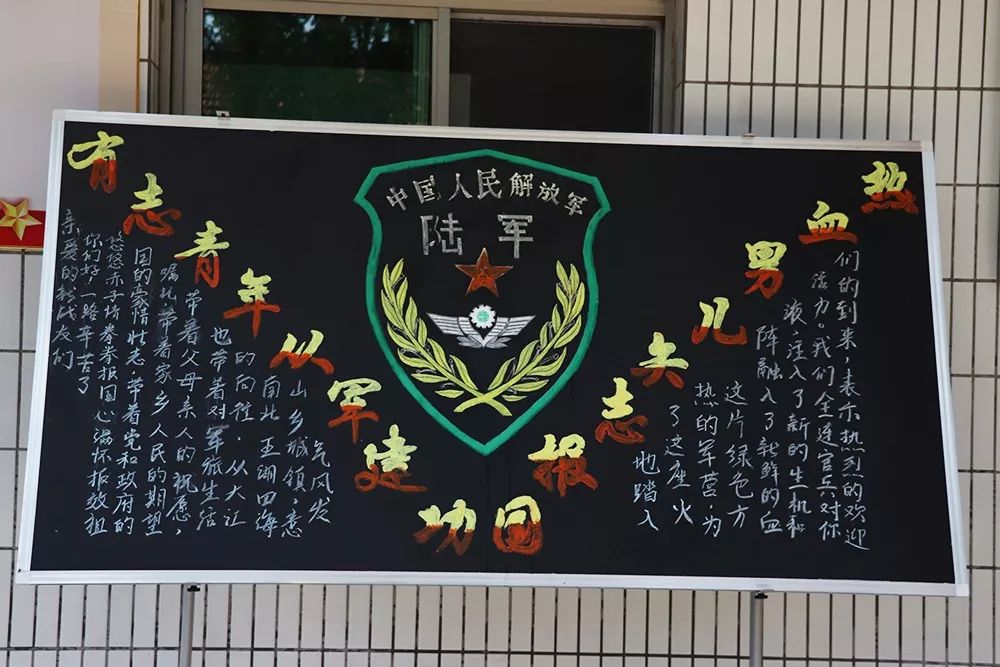 有志青年从军建功
热血男儿矢志报国
中国人民解放军
陆军
亲爱的新战友们
你们好,一路辛苦了
悠悠赤子情拳拳报国心满怀报效祖
国的豪情壮志,带着党和政府的
嘱托带着家乡人民的期望
带着父母亲人的祝愿,
也带着对军旅生活
的向往,从大江
南北五湖四海
山乡城镇,意
气风发
地踏入
了这座火
热的军营,为
这片绿色方
阵融入了新鲜的血
液注入了新的生机和
活力。我们全连官兵对你
们的到来,表示热烈的欢迎